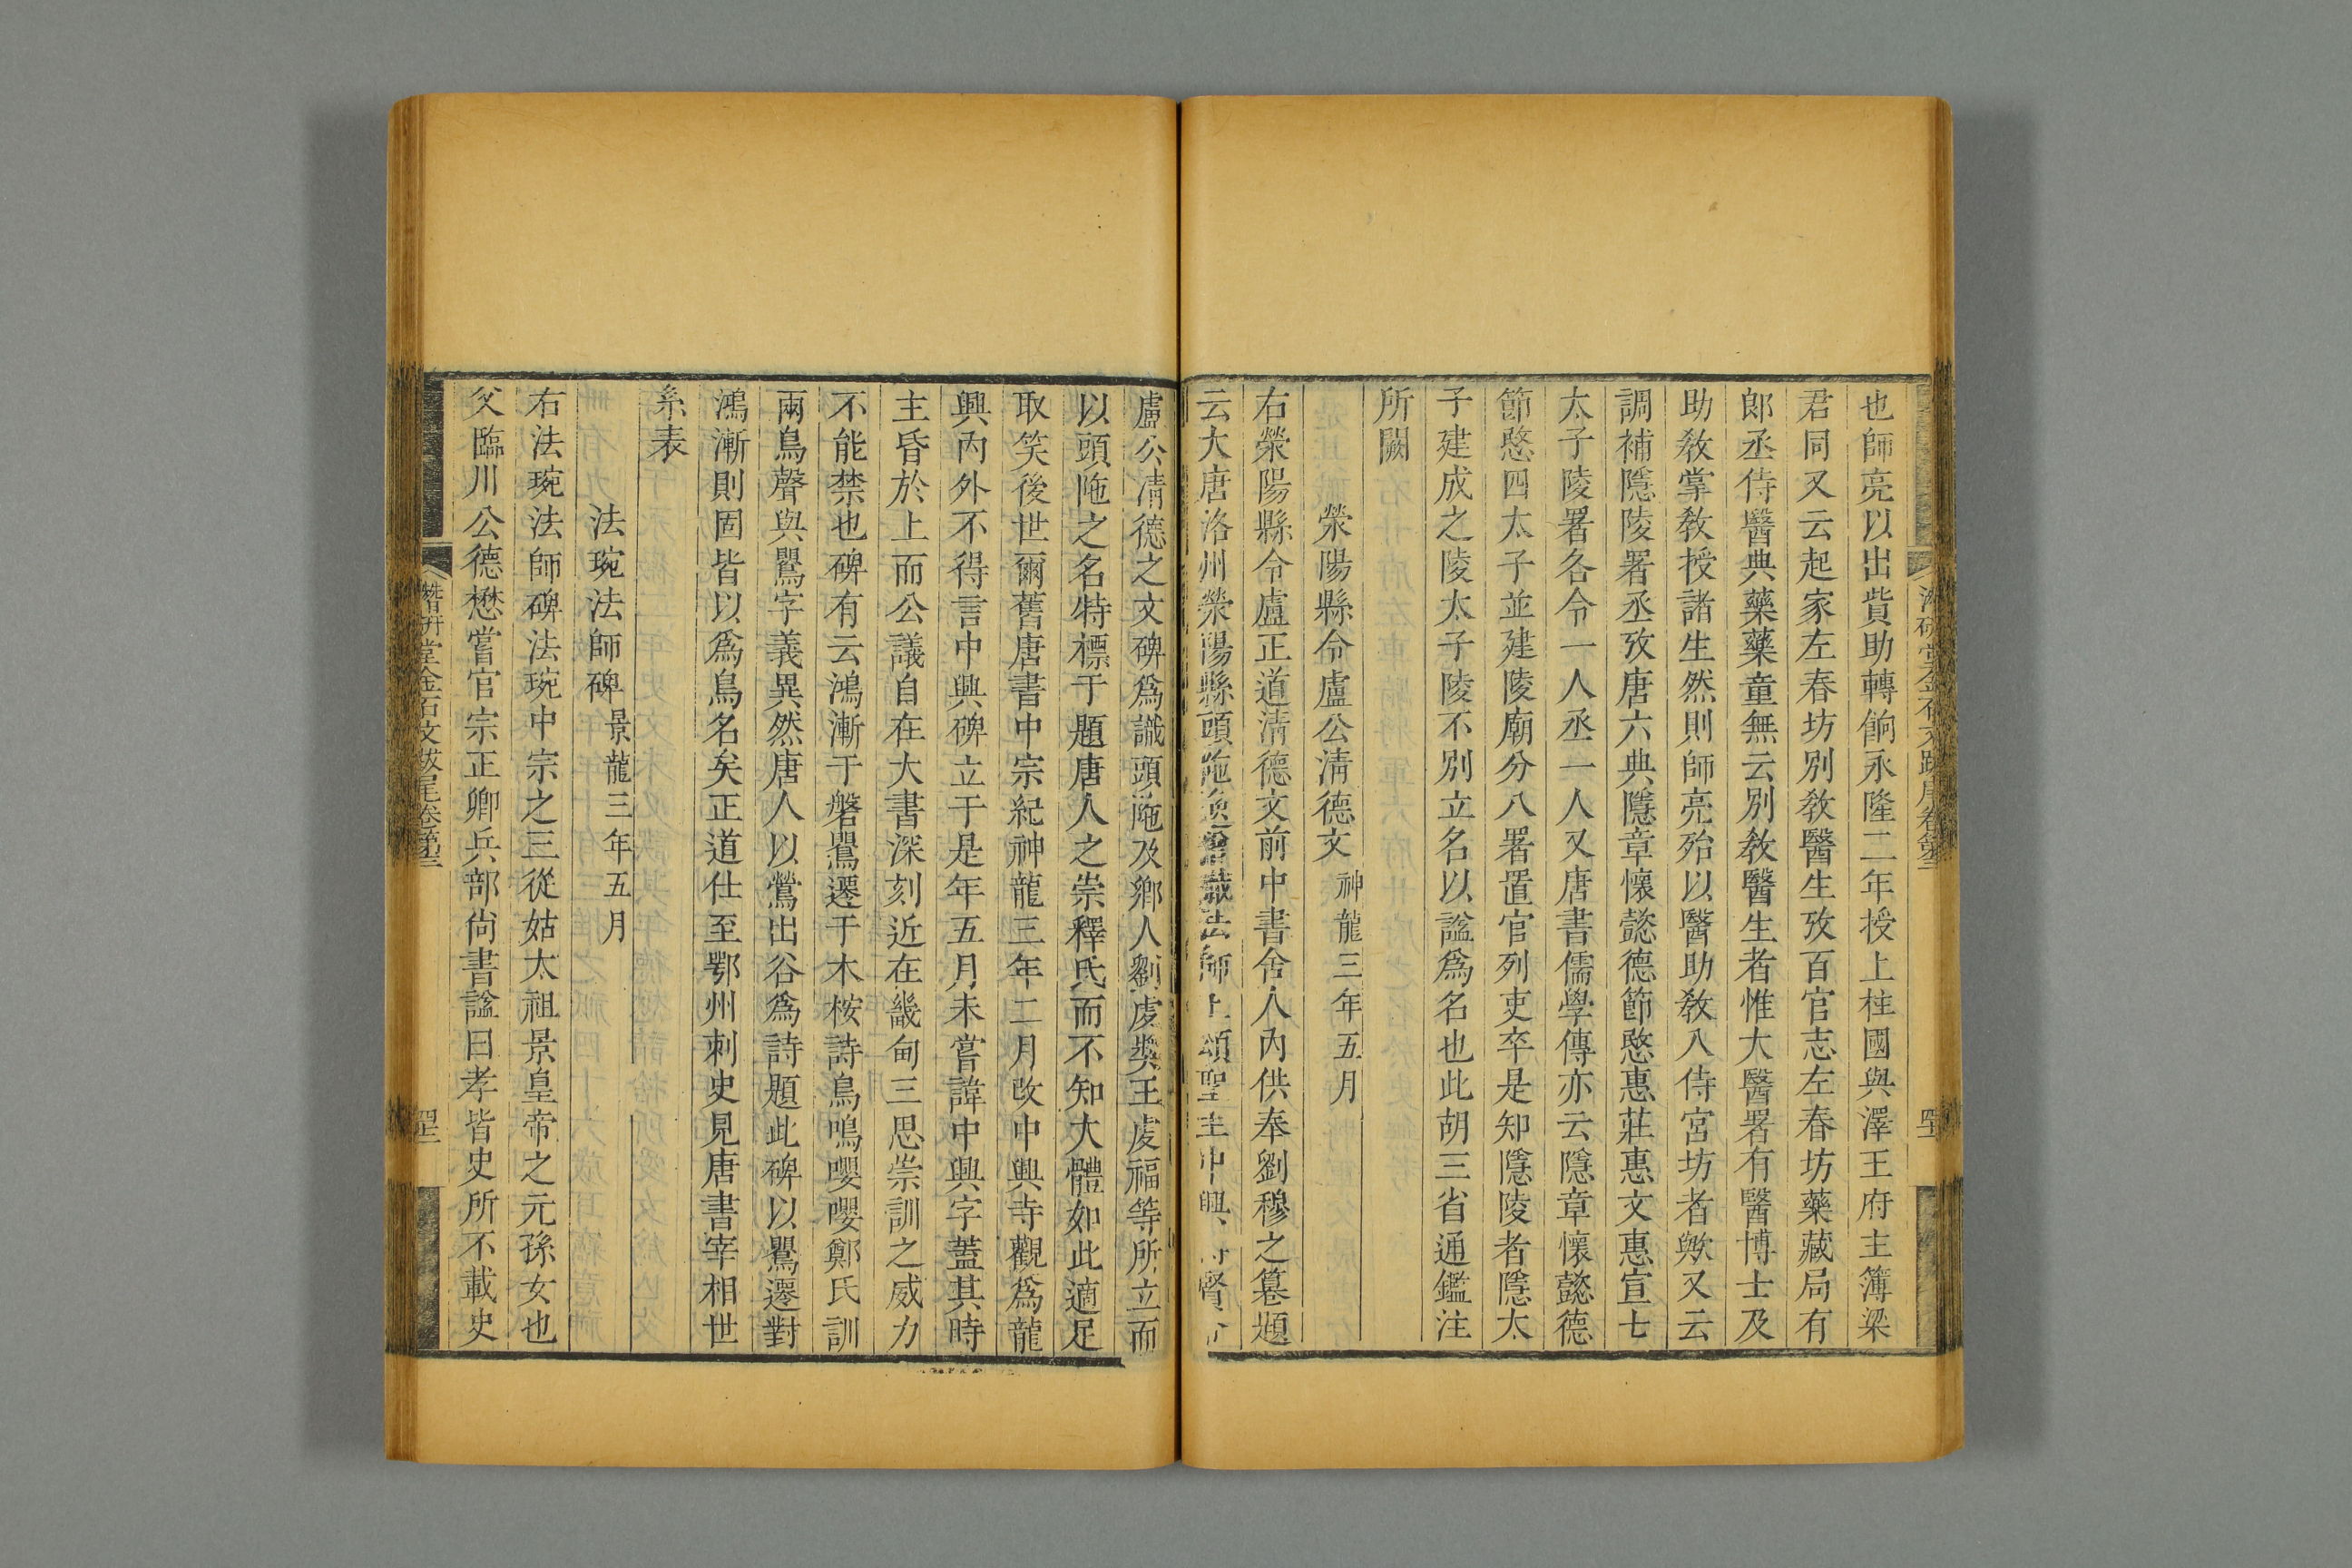 也師亮以出貲助轉餉永隆二年授上柱國與澤王府主簿梁
君同又云起家左春坊別敎醫生攷百官志左春坊藥藏局有
郎丞侍醫典藥藥童無云別敎醫生者惟大醫署有醫博士及
助敎掌敎授諸生然則師亮殆以醫助敎入侍宮坊者歟又云
調補隱陵署丞攷唐六典隱章懷懿德節愍惠莊惠文惠宣七
太子陵署各令一人丞一人又唐書儒學傳亦云隱章懷懿德
節愍四太子並建陵廟分八署置官列吏卒是知隱陵者隱太
子建成之陵太子陵不別立名以謚爲名也此胡三省通鑑注
所闕
滎陽縣令盧公淸德文 神龍三年五月
右滎陽縣令盧正道淸德文前中書舍人內供奉劉穆之篹題
云大唐洛州滎陽縣頭陁逸僧識法師上頌聖主中興 賢
盧公淸德之文碑爲識頭陁及鄉人劉虔奬王虔福等所立而
以頭陁之名特標于題唐人之崇釋氏而不知大體如此適足
取笑後世爾舊唐書中宗紀神龍三年二月改中興寺觀爲龍
興內外不得言中興碑立于是年五月未嘗諱中興字蓋其時
主昏於上而公議自在大書深刻近在畿甸三思崇訓之威力
不能禁也碑有云鴻漸于磐鸎遷于木桉詩鳥鳴嚶嚶鄭氏訓
兩鳥聲與鸎字義異然唐人以鶯出谷爲詩題此碑以鸎遷對
鴻漸則固皆以爲鳥名矣正道仕至鄂州刺史見唐書宰相世
系表
法琬法師碑 景龍三年五月
右法琬法師碑法琬中宗之三從姑太祖景皇帝之元孫女也
父臨川公德懋嘗官宗正卿兵部尙書謚曰孝皆史所不載史
潛硏堂金石文跋尾卷